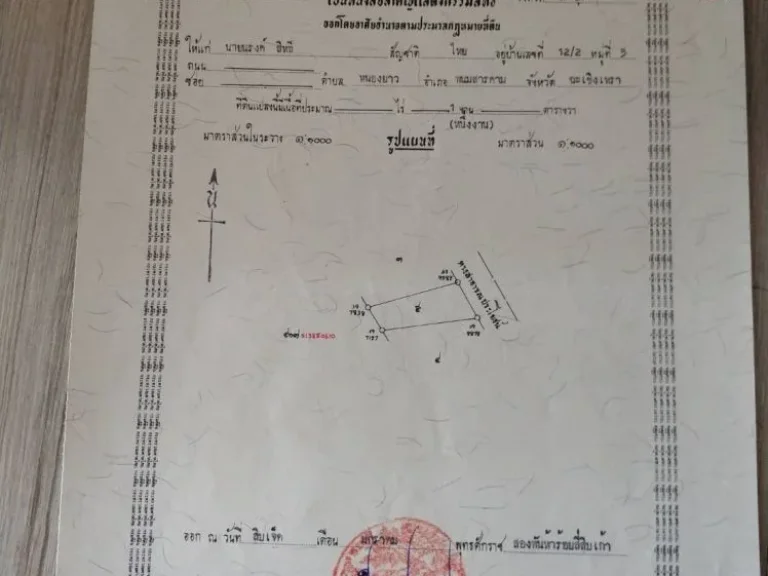 เป็นหนังสือสำคัญแสดงกรรมสิทธิ์
ออกโดยอาศัยอำนาจตามประมวลกฎหมายที่ดิน
ให้แก่ นายณรงค์ สิทธิ สัญชาติ ไทย อยู่บ้านเลขที่ 12/2 หมู่ที่ 5
ถนน
ซอย ตำบล หนองยาว อำเภอ พนมสารคาม จังหวัด ฉะเชิงเทรา
ที่ดินแปลงนี้มีเนื้อที่ประมาณ ไร่ 1 งาน ตารางวา
(หนึ่งงาน)
มาตราส่วนในระวาง ๑:๑๐๐๐ รูปแผนที่ มาตราส่วน ๑:๑๐๐๐
น
๓
ทางสาธารณประโยชน์
๔
ออก ณ วันที่ สิบเจ็ด เดือน มกราคม พุทธศักราช สองพันห้าร้อยสี่สิบเก้า